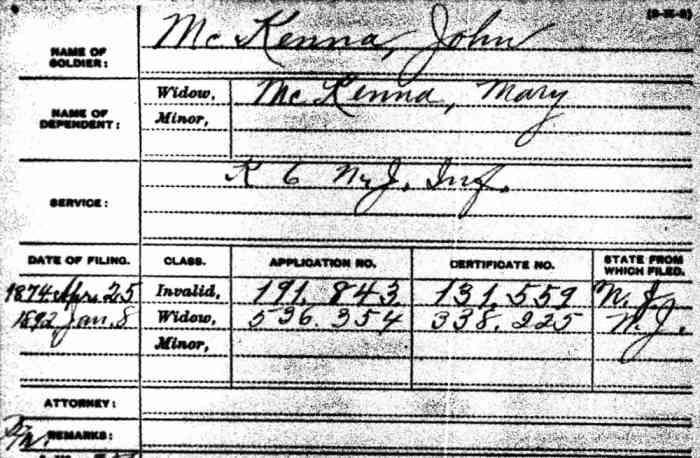 NAME OF SOLDIER: McKenna, John
NAME OF DEPENDENT: Widow, McKenna, Mary
Minor,
SERVICE: K 6 N.J. Inf.
DATE OF FILING. CLASS. APPLICATION NO. CERTIFICATE NO. STATE FROM WHICH FILED.
1874 Apr. 25 Invalid, 191.843 131.559 N.J.
1892 Jan. 8 Widow, 536.354 338.225 N.J.
Minor,
ATTORNEY:
REMARKS: